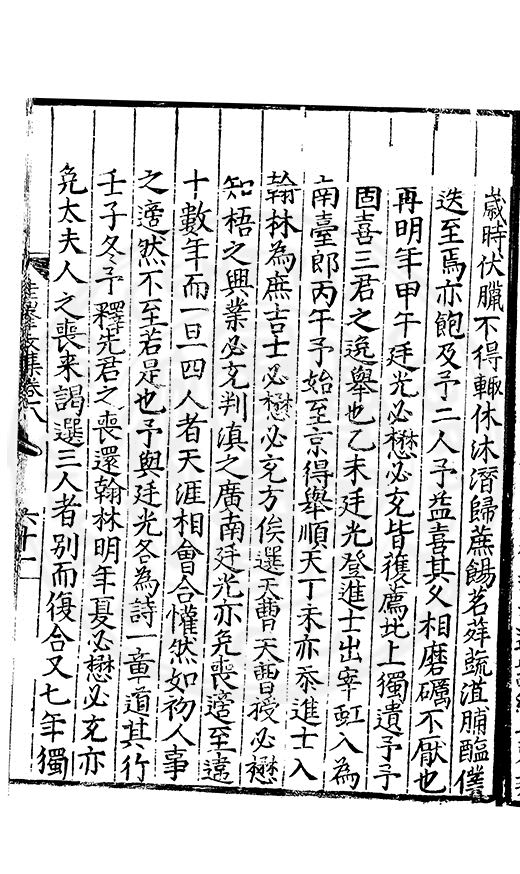 歲時伏臘不得輙休沐潛歸蕉餳茗蕣蔬渣脯醢僕
迭至焉亦飽及予二人予益喜其父相磨礪不厭也
再明年甲午廷光必懋必充皆獲薦北上獨遺予予
固喜三君之逸舉也乙未廷光登進士出宰虹入為
南臺郎丙午予始至京得舉順天丁未亦忝進士入
翰林為庶吉士必懋必充方俟選天曹天曹授必懋
知梧之興業必充判滇之廣南廷光亦免喪適至違
十數年而一旦四人者天涯相會合懽然如初人事
之適然不至若是也予與廷光各為詩一章道其行
壬子冬予釋先君之喪還翰林明年夏必懋必充亦
免太夫人之喪来謁選三人者别而復合又七年獨
集卷八
六十二